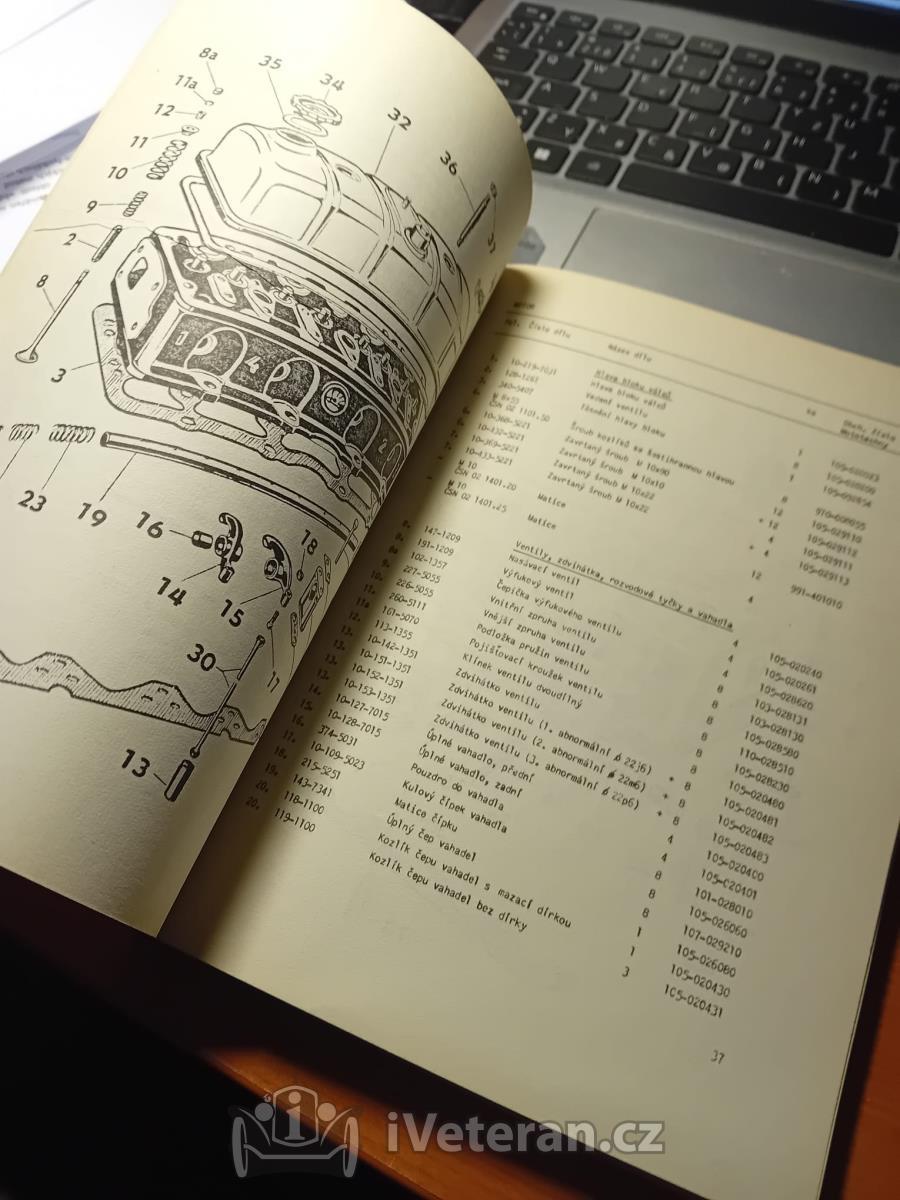 8a
35
34
11a
12
32
11
36
10
9
2
8
1
4
3
23
19
16
18
14
15
17
30
13
MOTOR
Název dílu
ks
Hlava bloku válců
1. 10-219-7031 hlava bloku válců 1 105-000083
2. 128-1261 Vedení ventilu 8
3. 340-5407 Těsnění hlavy bloku 1
M 8x55
ČSN 02 1101.50 Šroub kozlíků se šestihrannou hlavou 8 970-608055
10-368-5221 Zavrtaný šroub M 10x90 12 105-029110
10-432-5221 Zavrtaný šroub M 10x10 + 12 105-029112
10-369-5221 Zavrtaný šroub M 10x22 4 105-029111
10-433-5221 Zavrtaný šroub M 10x22 + 4 105-029113
M 10
ČSN 02 1401.20 Matice 12 991-401010
M 10
ČSN 02 1401.25 Matice 4
Ventily, zdvihátka, rozvodové tyčky a vahadla
8. 147-1209 Nasávací ventil 4 105-020240
8. 191-1209 Výfukový ventil 4 105-020261
8a 102-1357 Čepička výfukového ventilu 4 105-028620
227-5055 Vnitřní zpruha ventilu 8 103-028131
10. 226-5055 Vnější zpruha ventilu 8 103-028130
11. 260-5111 Podložka pružin ventilu 8 105-028580
11a 161-5070 Pojišťovací kroužek ventilu 8 110-028510
12. 113-1355 Klínek ventilu dvoudílný 8 105-028230
13. 10-142-1351 Zdvihátko ventilu 8 105-020480
13. 10-151-1351 Zdvihátko ventilu (1. abnormální ø 22j6) + 8 105-020481
13. 10-152-1351 Zdvihátko ventilu (2. abnormální ø 22m6) + 8 105-020482
13. 10-153-1351 Zdvihátko ventilu (3. abnormální ø 22p6) + 8 105-020483
14. 10-127-7015 Úplné vahadlo, přední 4 105-020400
15. 10-128-7015 Úplné vahadlo, zadní 4 105-020401
374-5031 Pouzdro do vahadla 8 101-028010
17. 10-109-5023 Kulový čípek vahadla 8 105-026060
18. 215-5251 Matice čípku 8 107-029210
19. 143-7341 Úplný čep vahadel 1 105-026080
20. 118-1100 Kozlík čepu vahadel s mazací dírkou 1 105-020430
20. 119-1100 Kozlík čepu vahadel bez dírky 3 105-020431
37
iVeteran.cz